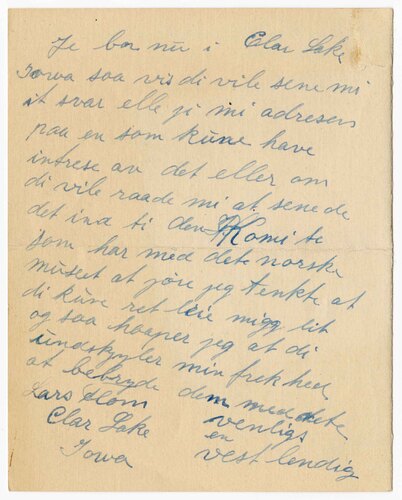 Je bor nu i Clar Lake
Iowa saa vis di vile sene mi
it svar elle ji mi adresen
paa en som kune have
intrese av det eller om
di vile raade mi at sene de
det ind ti den Komite
som har med dete norske
museet at jøre jeg tenkte at
di kune ret leie migg lit
og saa haaper jeg at di
undskyler min frekhed
at bebryde dem med dete
Lars Hom venligs
Clar Lake en
Iowa vestlendig